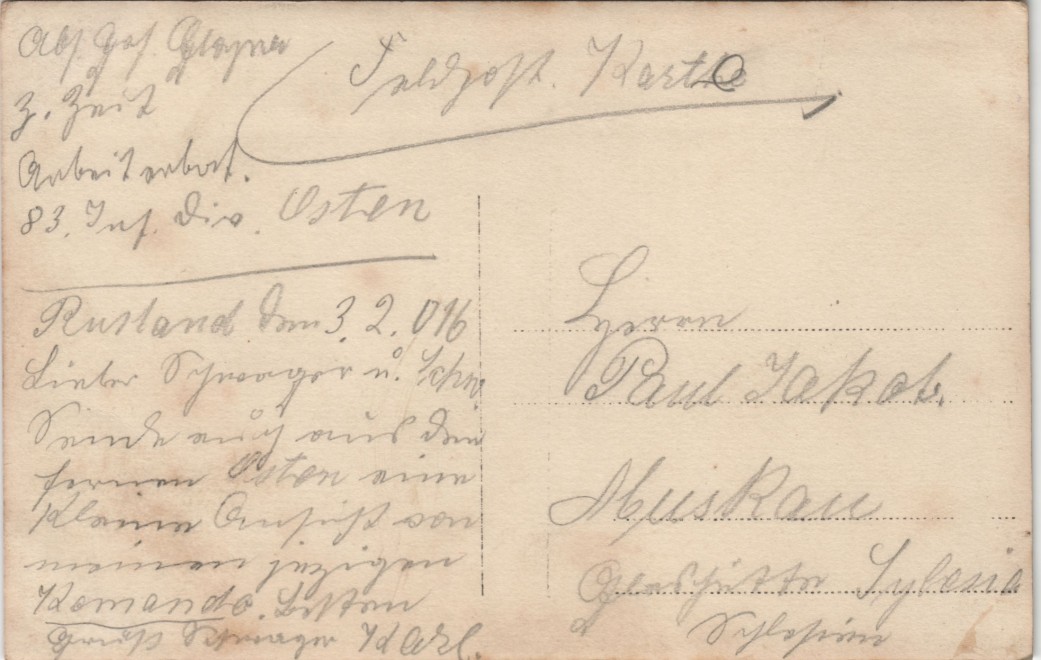 Abs. Gef.
z. Zeit
Arbeiterbat.
83. Inf. Div. Osten
Feldpost. Karte
Rusland den 3. 2. 016
Lieber Schwager u. Schw
Sende euch aus den
fernen Osten eine
Kleine Ansicht von
meinen jezigen
Komando. Besten
Gruß Schwager Karl.
Herrn
Paul Jakob.
Muskau
Glashütte
Schlesien